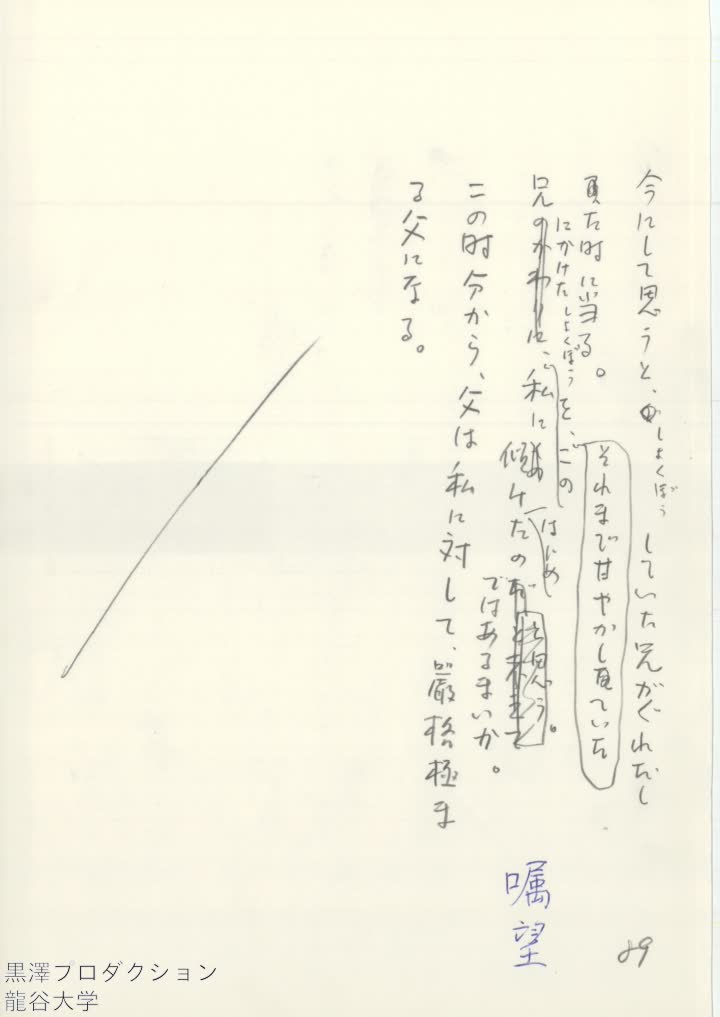 今にして思うと、しょくぼうしていた兄がぐれだし
た時に当る。
それまで甘やかし見ていた
にかけたしょくぼうを、この
兄のかわりに、私に傾けたの
はじめ
と思う。
ではあるまいか。
この時分から、父は私に対して、厳格極ま
る父になる。
嘱望
89
黒澤プロダクション
龍谷大学